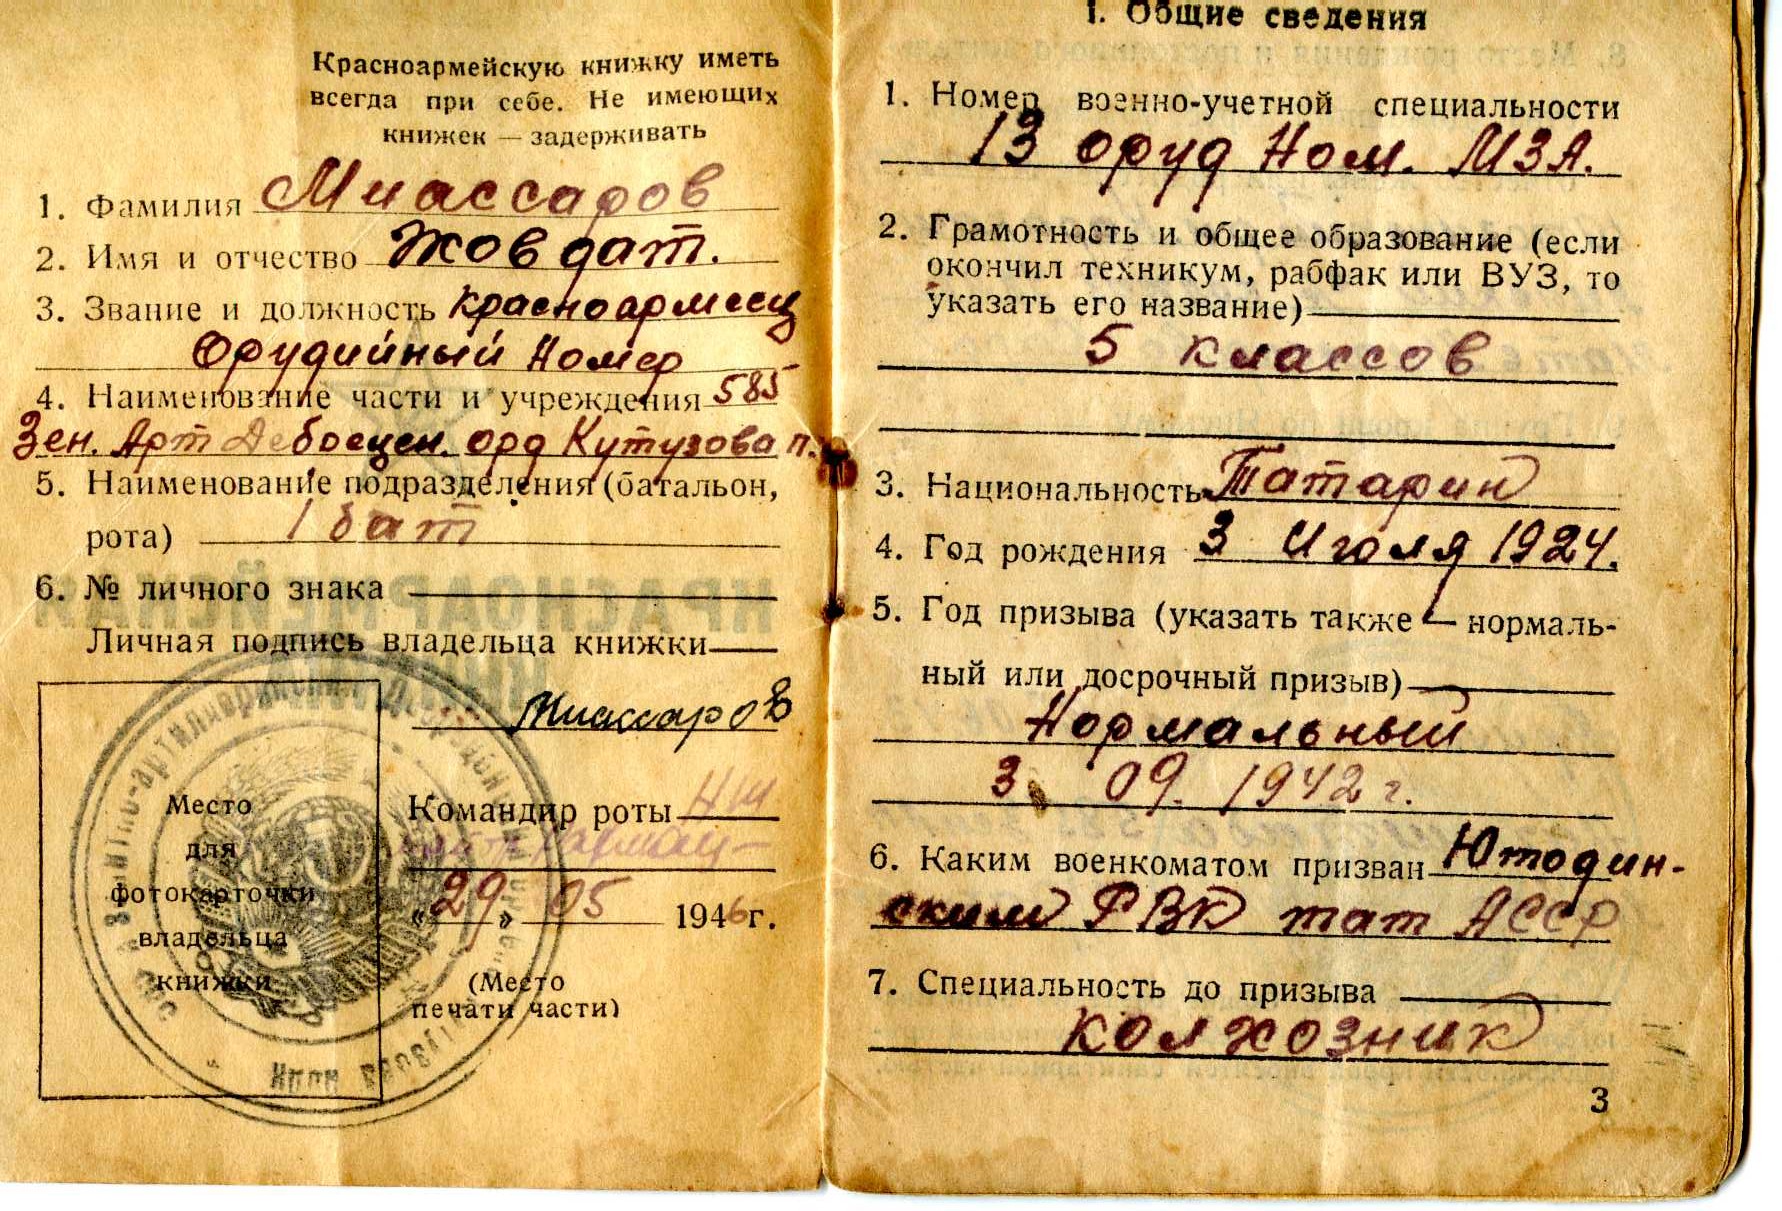 Красноармейскую книжку иметь
всегда при себе. Не имеющих
книжек — задерживать
1. Фамилия Миассаров
2. Имя и отчество Жовдат.
3. Звание и должность красноармеец
Орудийный Номер
4. Наименование части и учреждения 585
Зен. Арт Дебоецен. орд Кутузова п.
5. Наименование подразделения (батальон,
рота) 1 бат
6. № личного знака
Личная подпись владельца книжки
Миассаров
Место
для
фотокарточки
владельца
книжки
Командир роты НШ
«29» 05 1946г.
(Место
печати части)
I. Общие сведения
1. Номер военно-учетной специальности
13 оруд Ном. МЗА.
2. Грамотность и общее образование (если
окончил техникум, рабфак или ВУЗ, то
указать его название)
5 классов
3. Национальность Татарин
4. Год рождения 3 Июля 1924.
5. Год призыва (указать также — нормаль-
ный или досрочный призыв)
Нормальный
3 09. 1942 г.
6. Каким военкоматом призван Ютодин-
ским РВК тат АССР
7. Специальность до призыва
колхозник
3